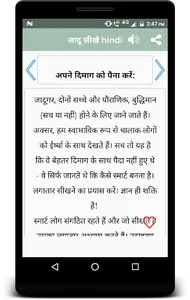 3:47 PM
जादू सीखे hindi
अपने दिमाग को पैना करें:
जादूगर, दोनों सच्चे और पौराणिक, बुद्धिमान
(सच या नहीं) होने के लिए जाने जाते हैं।
अक्सर, हम स्वाभाविक रूप से चालाक लोगों
को ईर्ष्या के साथ देखते हैं। सच तो यह है
कि वे बेहतर दिमाग के साथ पैदा नहीं हुए थे
- वे सिर्फ जानते थे कि कैसे स्मार्ट बनना है।
लगातार सीखने का प्रयास करें। ज्ञान ही शक्ति
है!
स्मार्ट लोग संगठित रहते हैं और जो सीखते